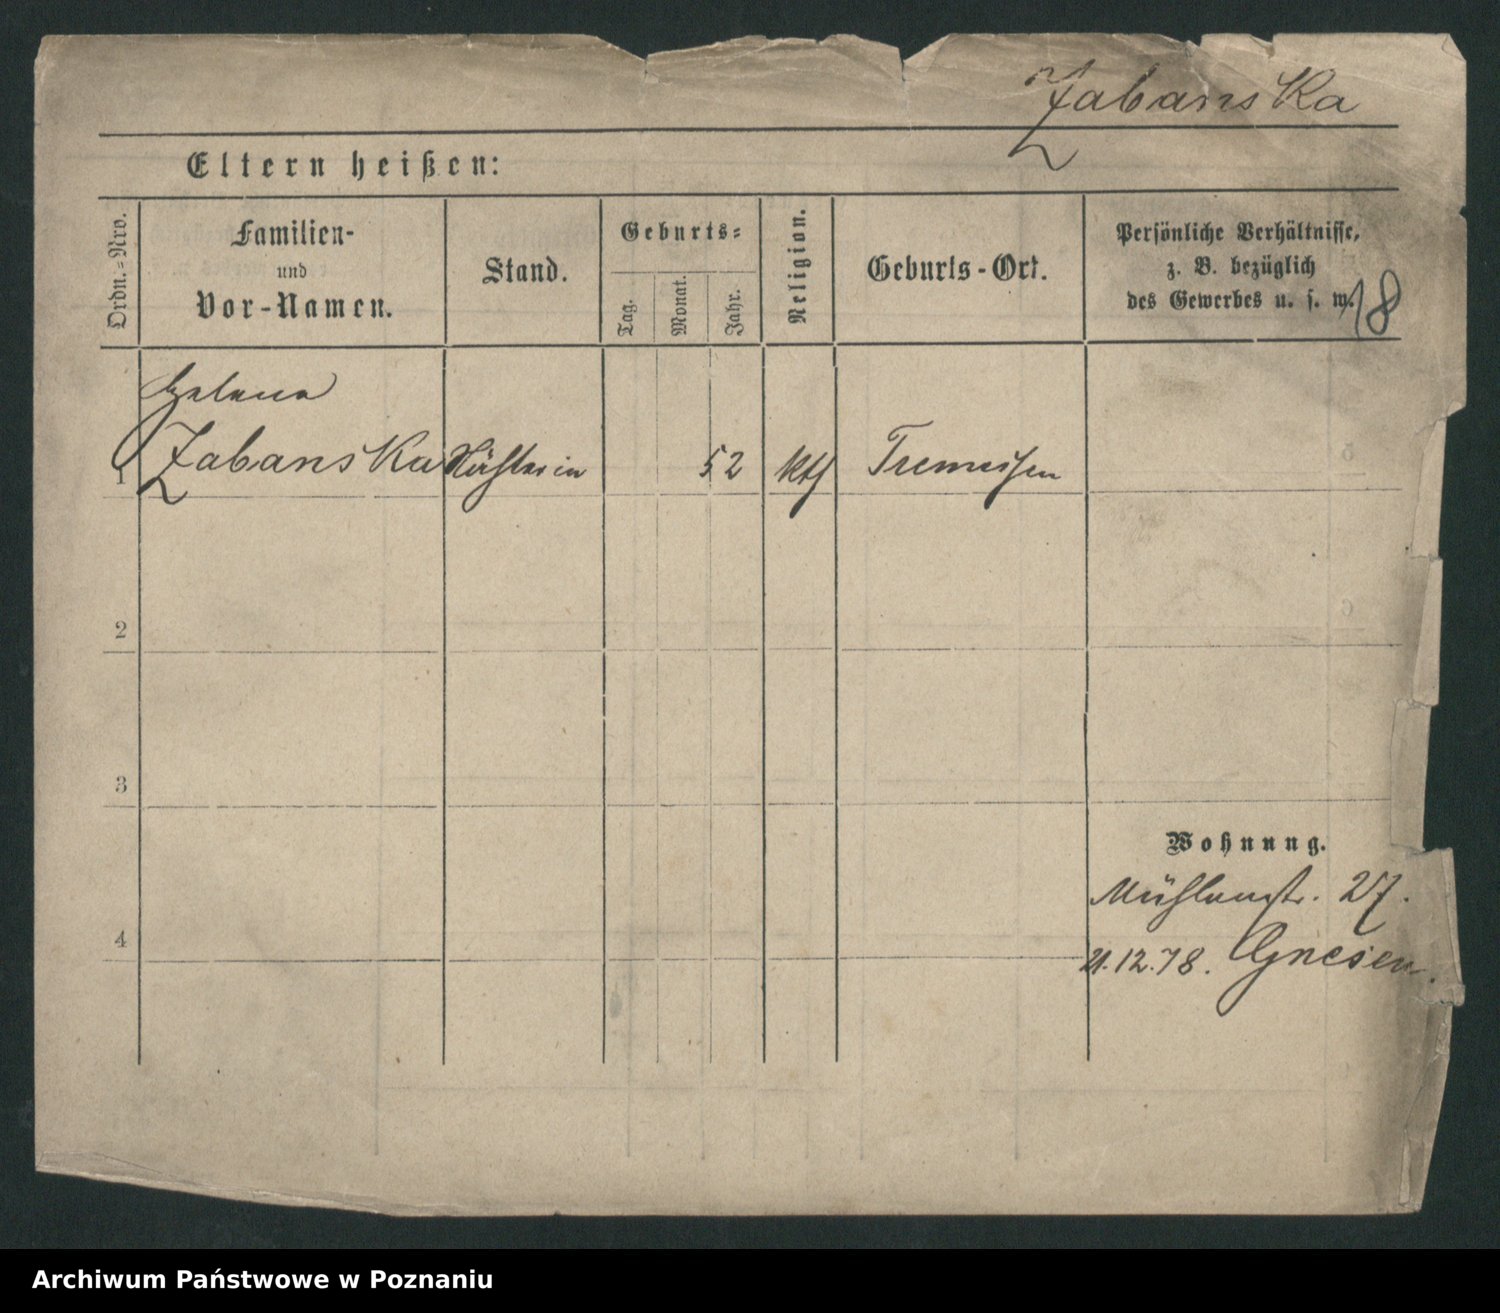 Zabanska
Eltern heißen:
Ordn.=Nro.
Familien-
und
Vor-Namen.
Stand.
Geburts=
Tag.
Monat.
Jahr.
Religion.
Geburts-Ort.
Persönliche Verhältnisse,
z. B. bezüglich
des Gewerbes u. s. w.
18
Helena
1 Zabanska Nähterin 52 kth Tremessen
2
3
Wohnung.
Mühlenstr. 27.
4
21.12.78. Gnesen.
Archiwum Państwowe w Poznaniu